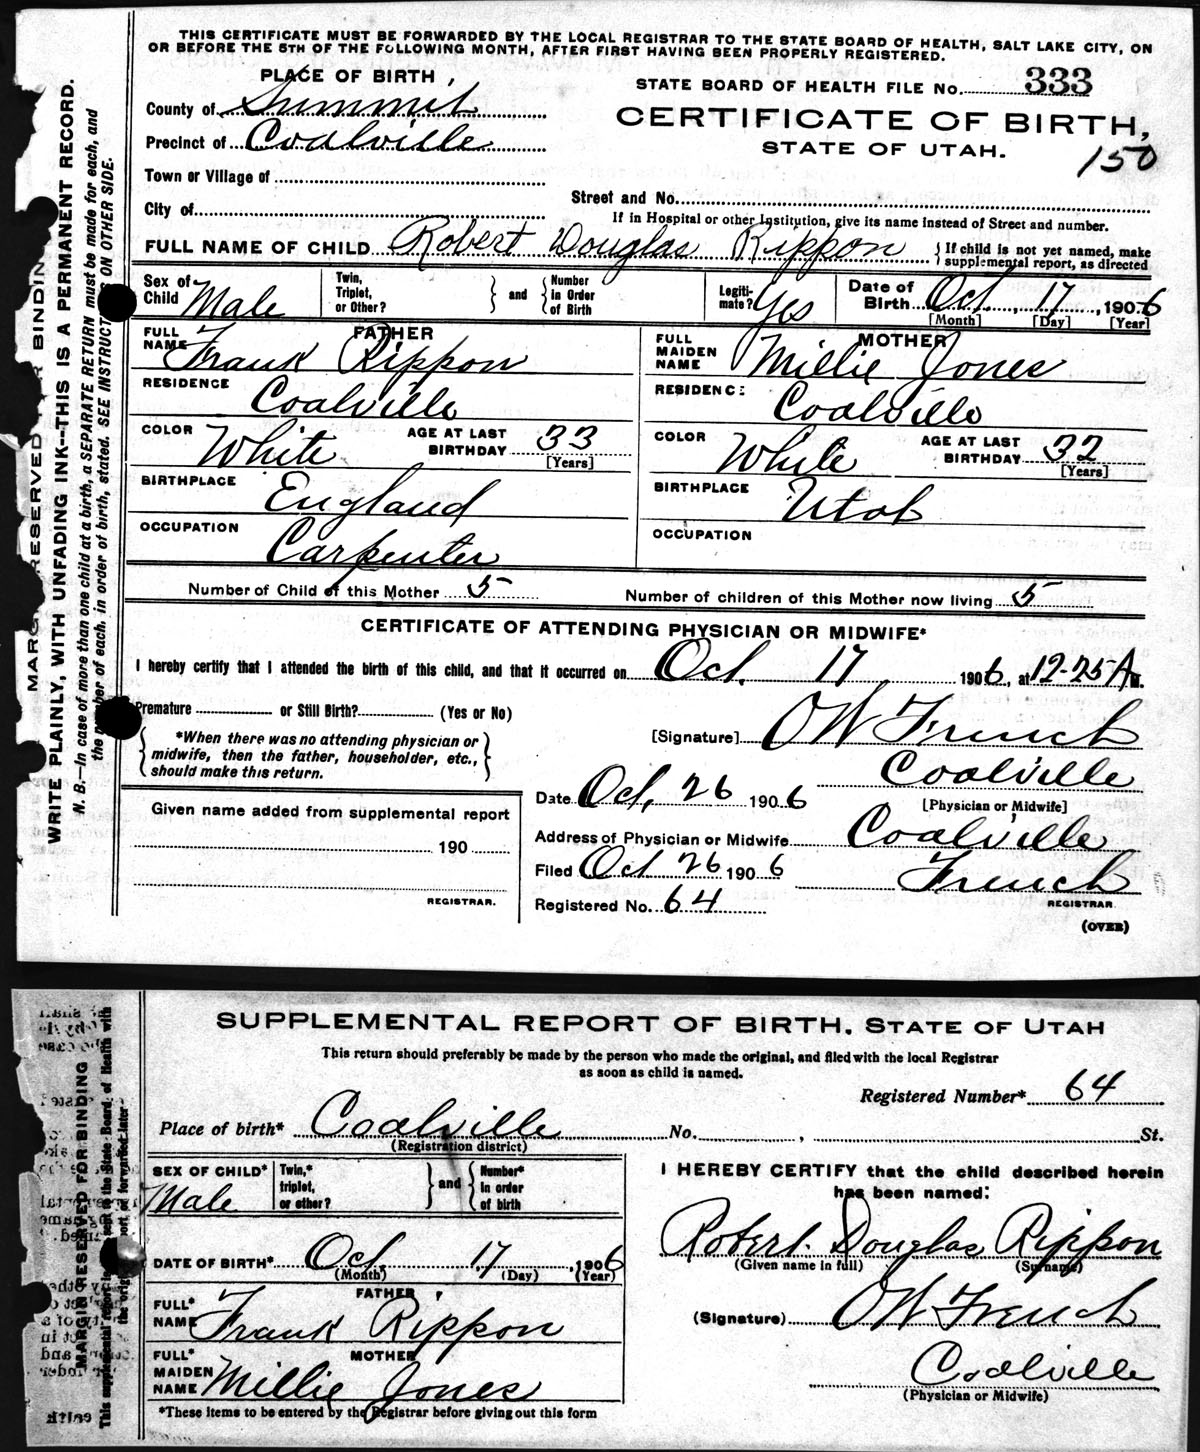 THIS CERTIFICATE MUST BE FORWARDED BY THE LOCAL REGISTRAR TO THE STATE BOARD OF HEALTH, SALT LAKE CITY, ON
OR BEFORE THE 5TH OF THE FOLLOWING MONTH, AFTER FIRST HAVING BEEN PROPERLY REGISTERED.
PLACE OF BIRTH
STATE BOARD OF HEALTH FILE No. 333
County of Summit
CERTIFICATE OF BIRTH,
Precinct of Coalville
STATE OF UTAH.
150
Town or Village of
Street and No.
City of
If in Hospital or other Institution, give its name instead of Street and number.
FULL NAME OF CHILD Robert Douglas Rippon { If child is not yet named, make
supplemental report, as directed
Sex of Child Male
Twin, Triplet, or Other? } and { Number in Order of Birth
Legiti-mate? Yes
Date of Birth Oct. 17, 1906
[Month] [Day] [Year]
FATHER
FULL NAME Frank Rippon
RESIDENCE Coalville
COLOR White AGE AT LAST BIRTHDAY 33
[Years]
BIRTHPLACE England
OCCUPATION Carpenter
MOTHER
FULL MAIDEN NAME Millie Jones
RESIDENCE Coalville
COLOR White AGE AT LAST BIRTHDAY 32
[Years]
BIRTHPLACE Utah
OCCUPATION
Number of Child of this Mother 5 Number of children of this Mother now living 5
CERTIFICATE OF ATTENDING PHYSICIAN OR MIDWIFE*
I hereby certify that I attended the birth of this child, and that it occurred on Oct. 17 1906, at 12-25 A M.
Premature or Still Birth? (Yes or No)
{ *When there was no attending physician or
midwife, then the father, householder, etc.,
should make this return. }
[Signature] OW French
Coalville
[Physician or Midwife]
Date Oct. 26 1906
Address of Physician or Midwife Coalville
Filed Oct 26 1906 French
REGISTRAR
Registered No. 64
(OVER)
Given name added from supplemental report
190
REGISTRAR.
MARGIN RESERVED FOR BINDING
WRITE PLAINLY, WITH UNFADING INK--THIS IS A PERMANENT RECORD.
N. B.—In case of more than one child at a birth, a SEPARATE RETURN must be made for each, and
the number of each, in order of birth, stated. SEE INSTRUCTIONS ON OTHER SIDE.
SUPPLEMENTAL REPORT OF BIRTH, STATE OF UTAH
This return should preferably be made by the person who made the original, and filed with the local Registrar
as soon as child is named.
Registered Number* 64
Place of birth* Coalville No. , St.
(Registration district)
SEX OF CHILD* Male
Twin,* triplet, or other? } and { Number* in order of birth
DATE OF BIRTH* Oct. 17, 1906
(Month) (Day) (Year)
FATHER
FULL* NAME Frank Rippon
MOTHER
FULL* MAIDEN NAME Millie Jones
*These items to be entered by the Registrar before giving out this form
I HEREBY CERTIFY that the child described herein
has been named:
Robert Douglas Rippon
(Given name in full) (Surname)
(Signature) OW French
Coalville
(Physician or Midwife)
MARGIN RESERVED FOR BINDING